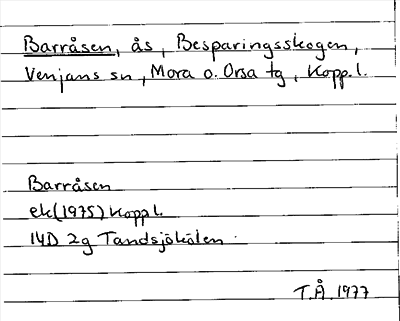 Barråsen, ås, Besparingsskogen,
Venjans sn, Mora o. Orsa tg, Kopp.l.
Barråsen
ek(1975) Kopp l.
14D 2g Tandsjökölen
T.Å. 1977